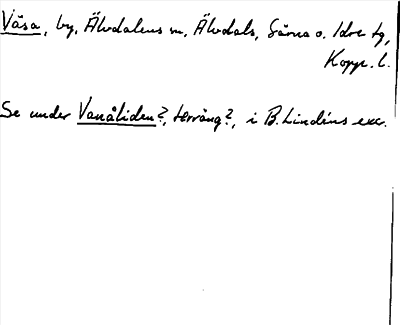 Våsa, by, Älvdalens sn, Älvdals, Särna o. Idre tg,
Kopp. l.
Se under Vanåliden?, terräng?, i B. Lindéns exc.